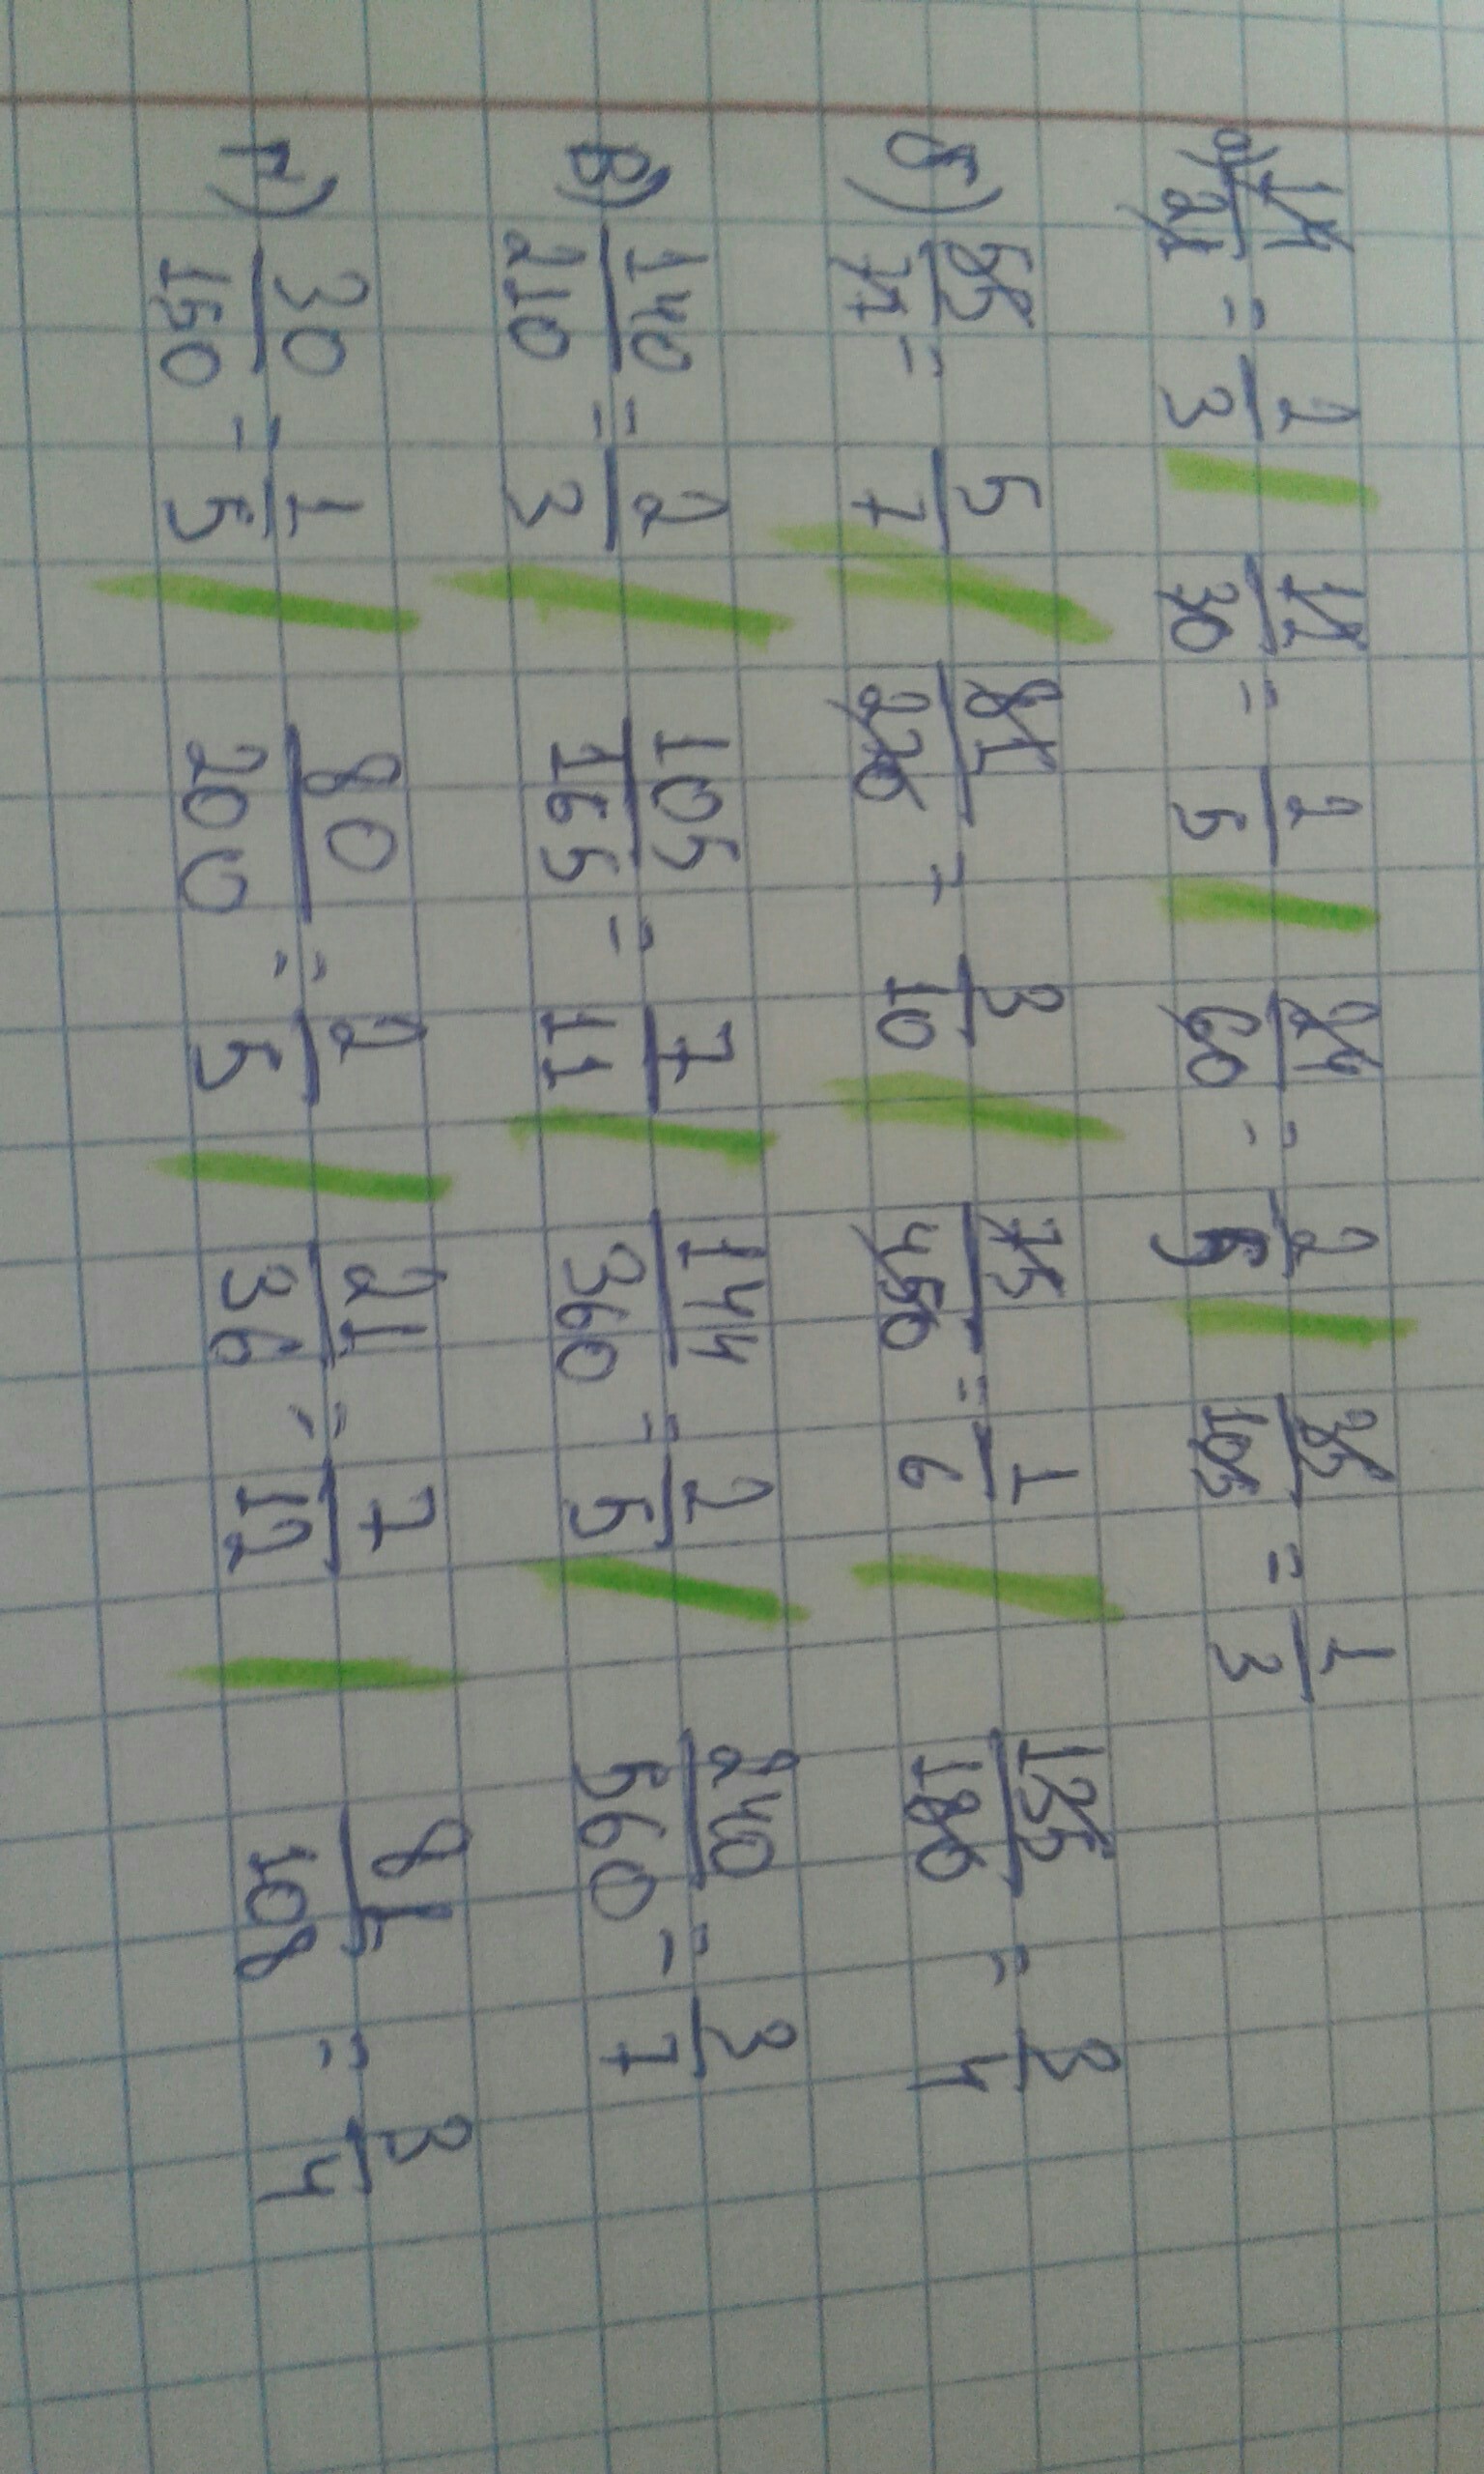 а) 14/21 = 2/3 12/30 = 2/5 24/60 = 2/5 35/105 = 1/3
б) 55/77 = 5/7 81/270 = 3/10 75/450 = 1/6 135/180 = 3/4
в) 140/210 = 2/3 105/165 = 7/11 144/360 = 2/5 240/560 = 3/7
г) 30/150 = 1/5 80/200 = 2/5 21/36 = 7/12 81/108 = 3/4